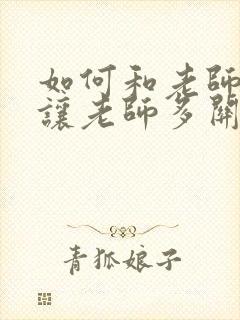 如何和老師
讓老師多關
青狐娘子